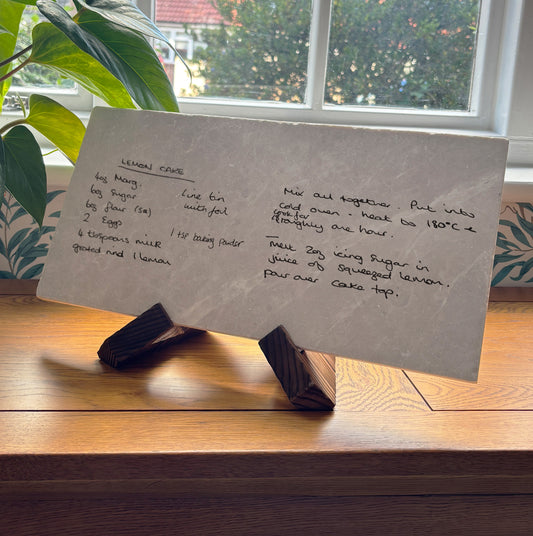 LEMON CAKE
4oz Marg.
6oz Sugar
6oz flour (SR)
2 Eggs
4 tblespoons milk
grated rind 1 lemon
Line tin
with foil
1 tsp baking powder
Mix all together. Put into
cold oven - heat to 180°C &
cook for
roughly one hour.
Melt 2oz icing sugar in
juice of squeezed lemon.
Pour over cake top.